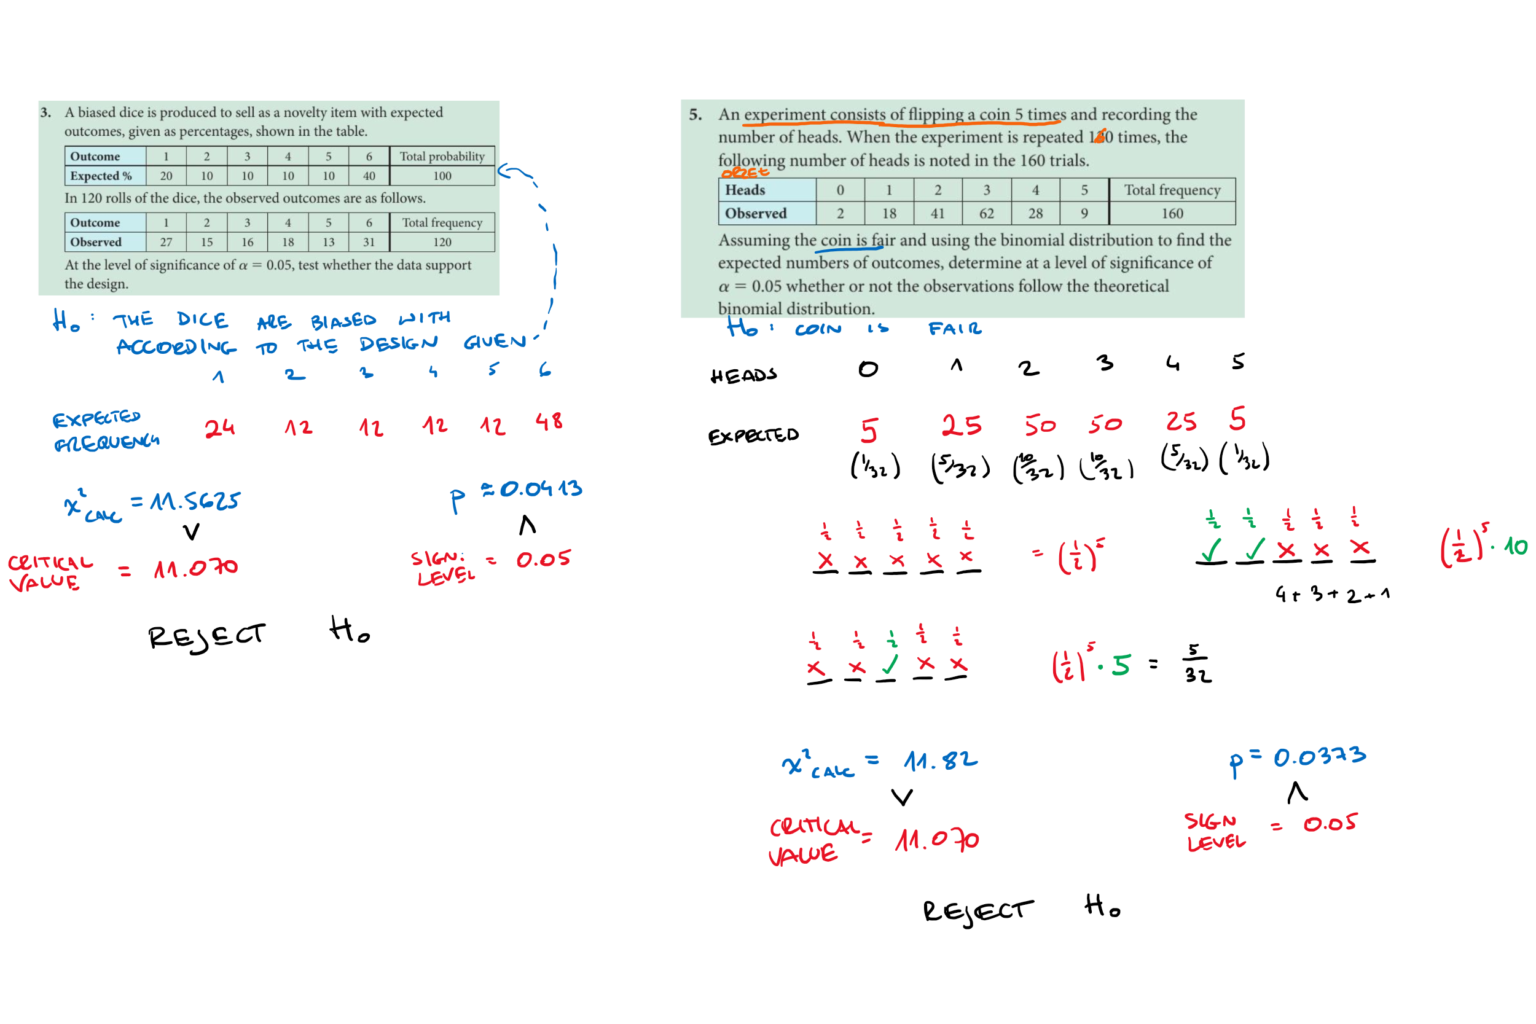 3. A biased dice is produced to sell as a novelty item with expected
outcomes, given as percentages, shown in the table.
Outcome 1 2 3 4 5 6 Total probability
Expected % 20 10 10 10 10 40 100
In 120 rolls of the dice, the observed outcomes are as follows.
Outcome 1 2 3 4 5 6 Total frequency
Observed 27 15 16 18 13 31 120
At the level of significance of α = 0.05, test whether the data support
the design.
H₀: THE DICE ARE BIASED WITH
ACCORDING TO THE DESIGN GIVEN
1 2 3 4 5 6
EXPECTED
FREQUENCY 24 12 12 12 12 48
χ²CALC = 11.5625
p ≈ 0.0413
∨
∧
CRITICAL
VALUE = 11.070
SIGN.
LEVEL = 0.05
REJECT H₀
5. An experiment consists of flipping a coin 5 times and recording the
number of heads. When the experiment is repeated 160 times, the
following number of heads is noted in the 160 trials.
Heads 0 1 2 3 4 5 Total frequency
Observed 2 18 41 62 28 9 160
Assuming the coin is fair and using the binomial distribution to find the
expected numbers of outcomes, determine at a level of significance of
α = 0.05 whether or not the observations follow the theoretical
binomial distribution.
H₀: COIN IS FAIR
HEADS 0 1 2 3 4 5
EXPECTED 5 25 50 50 25 5
(1/32) (5/32) (10/32) (10/32) (5/32) (1/32)
1/2 1/2 1/2 1/2 1/2
x x x x x = (1/2)⁵
1/2 1/2 1/2 1/2 1/2
✓ ✓ x x x (1/2)⁵ · 10
4 + 3 + 2 + 1
1/2 1/2 1/2 1/2 1/2
x x ✓ x x (1/2)⁵ · 5 = 5/32
χ²CALC = 11.82
p = 0.0373
∨
∧
CRITICAL
VALUE = 11.070
SIGN
LEVEL = 0.05
REJECT H₀